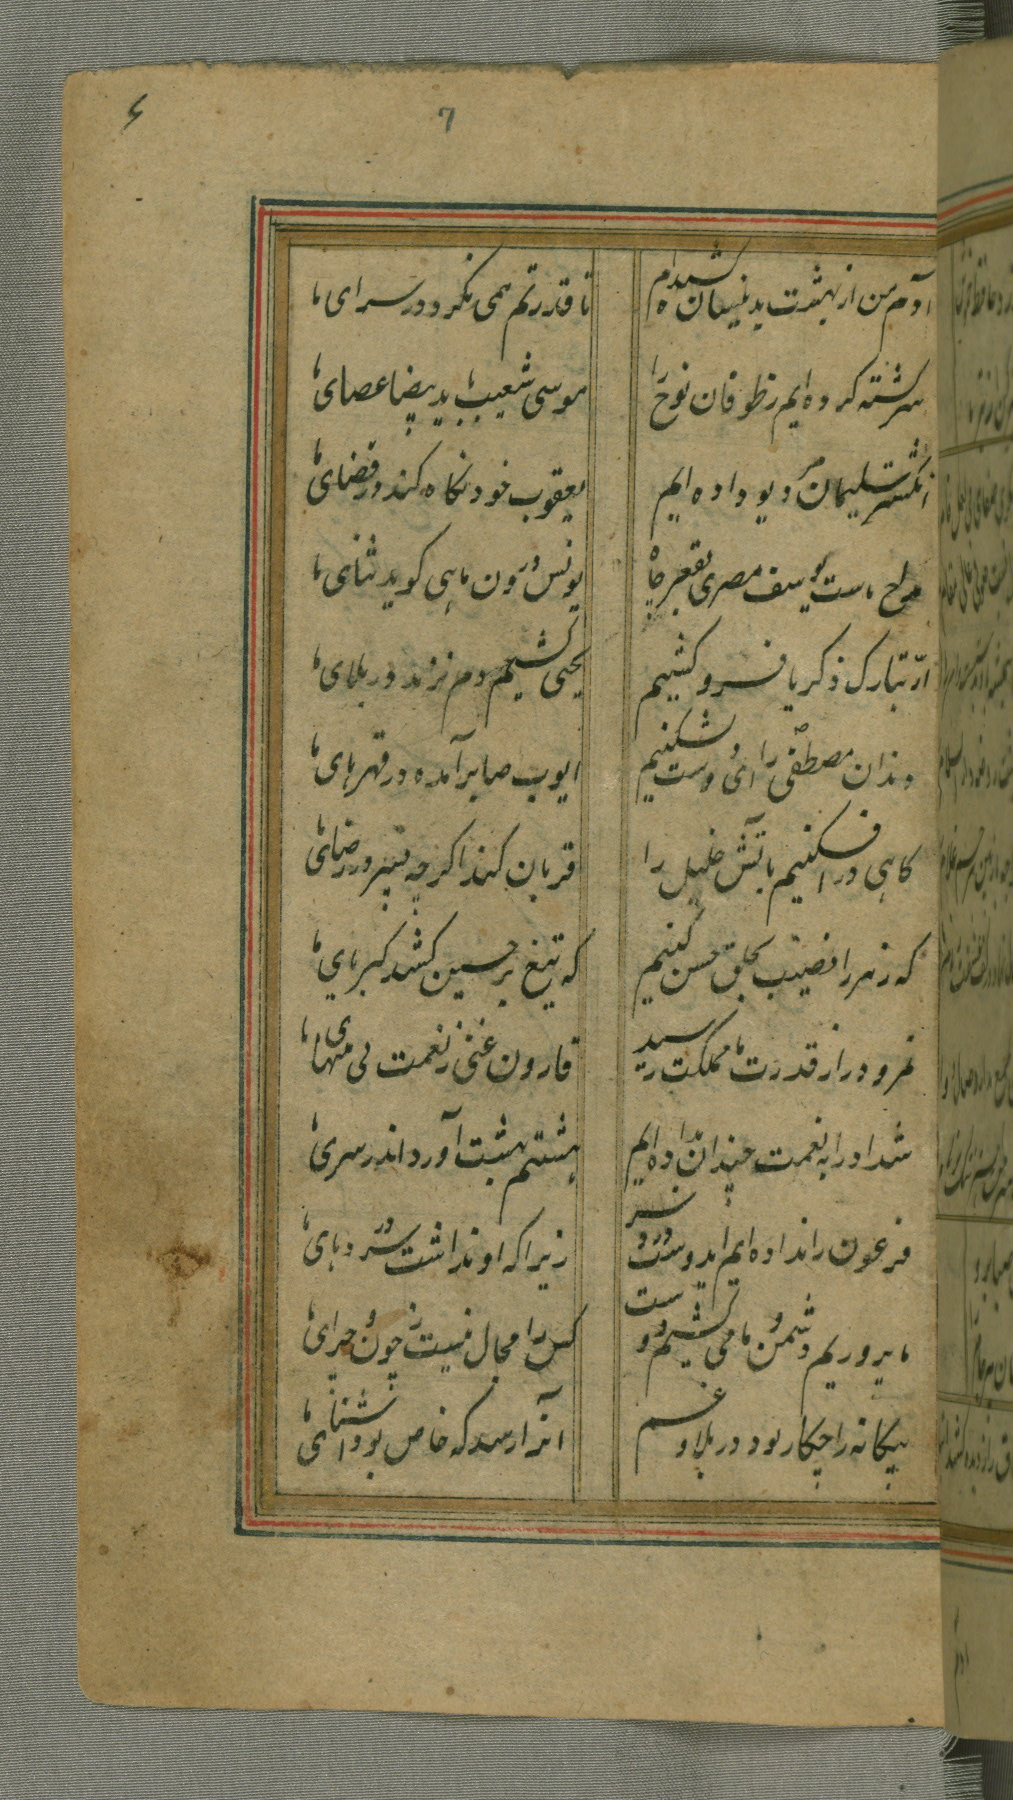 ۶
7
آدم من از بهشت بدنیسان کشیده‌ام
تا قدرتم همی نگرد در سرای ما
سرگشته کرده‌ایم ز طوفان نوح را
موسی شعیب با ید بیضا عصای ما
انگشتر سلیمان مر دیو داده ایم
یعقوب خود نگاه کند در قضای ما
مداح ماست یوسف مصری بقعر چاه
یونس درون ماهی گوید ثنای ما
ارّه بتارک ذکریا فرو کشیم
یحیی کشیم و دم نزند در بلای ما
دندان مصطفی را ای دوست بشکنیم
ایوب صابر آمده در قهرهای ما
گاهی در افکنیم بآتش خلیل را
قربان کند اگرچه پسر در رضای ما
که زهر را نصیب بحلق حسن کنیم
که تیغ بر حسین کشد کبریای ما
نمرود را ز قدرت ما مملکت رسید
قارون غنی ز نعمت بی منتهای ما
شداد را به نعمت چندان بداده ایم
هشتم بهشت آورد اندر سرای ما
فرعون را نداده ایم ایدوست درد سر
زیرا که او نداشت سر درد های ما
ما پروریم دشمن و ما می کشیم دوست
کس را مجال نیست ز چون و چرای ما
بیگانه را چکار بود در بلا و غم
آنرا رسد که خاص بود آشنای ما